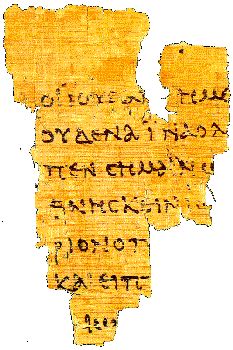 ΟΙ ΙΟΥΔΑΙ ΗΜΕ
ΟΥΔΕΝΑ ΙΝΑ Ο Λ
ΠΕΝ ϹΗΜΑΙΝΩ
ΘΝΗϹΚΕΙΝ Ι
ΡΙΟΝ Ο Π
ΚΑΙ ΕΙΠ